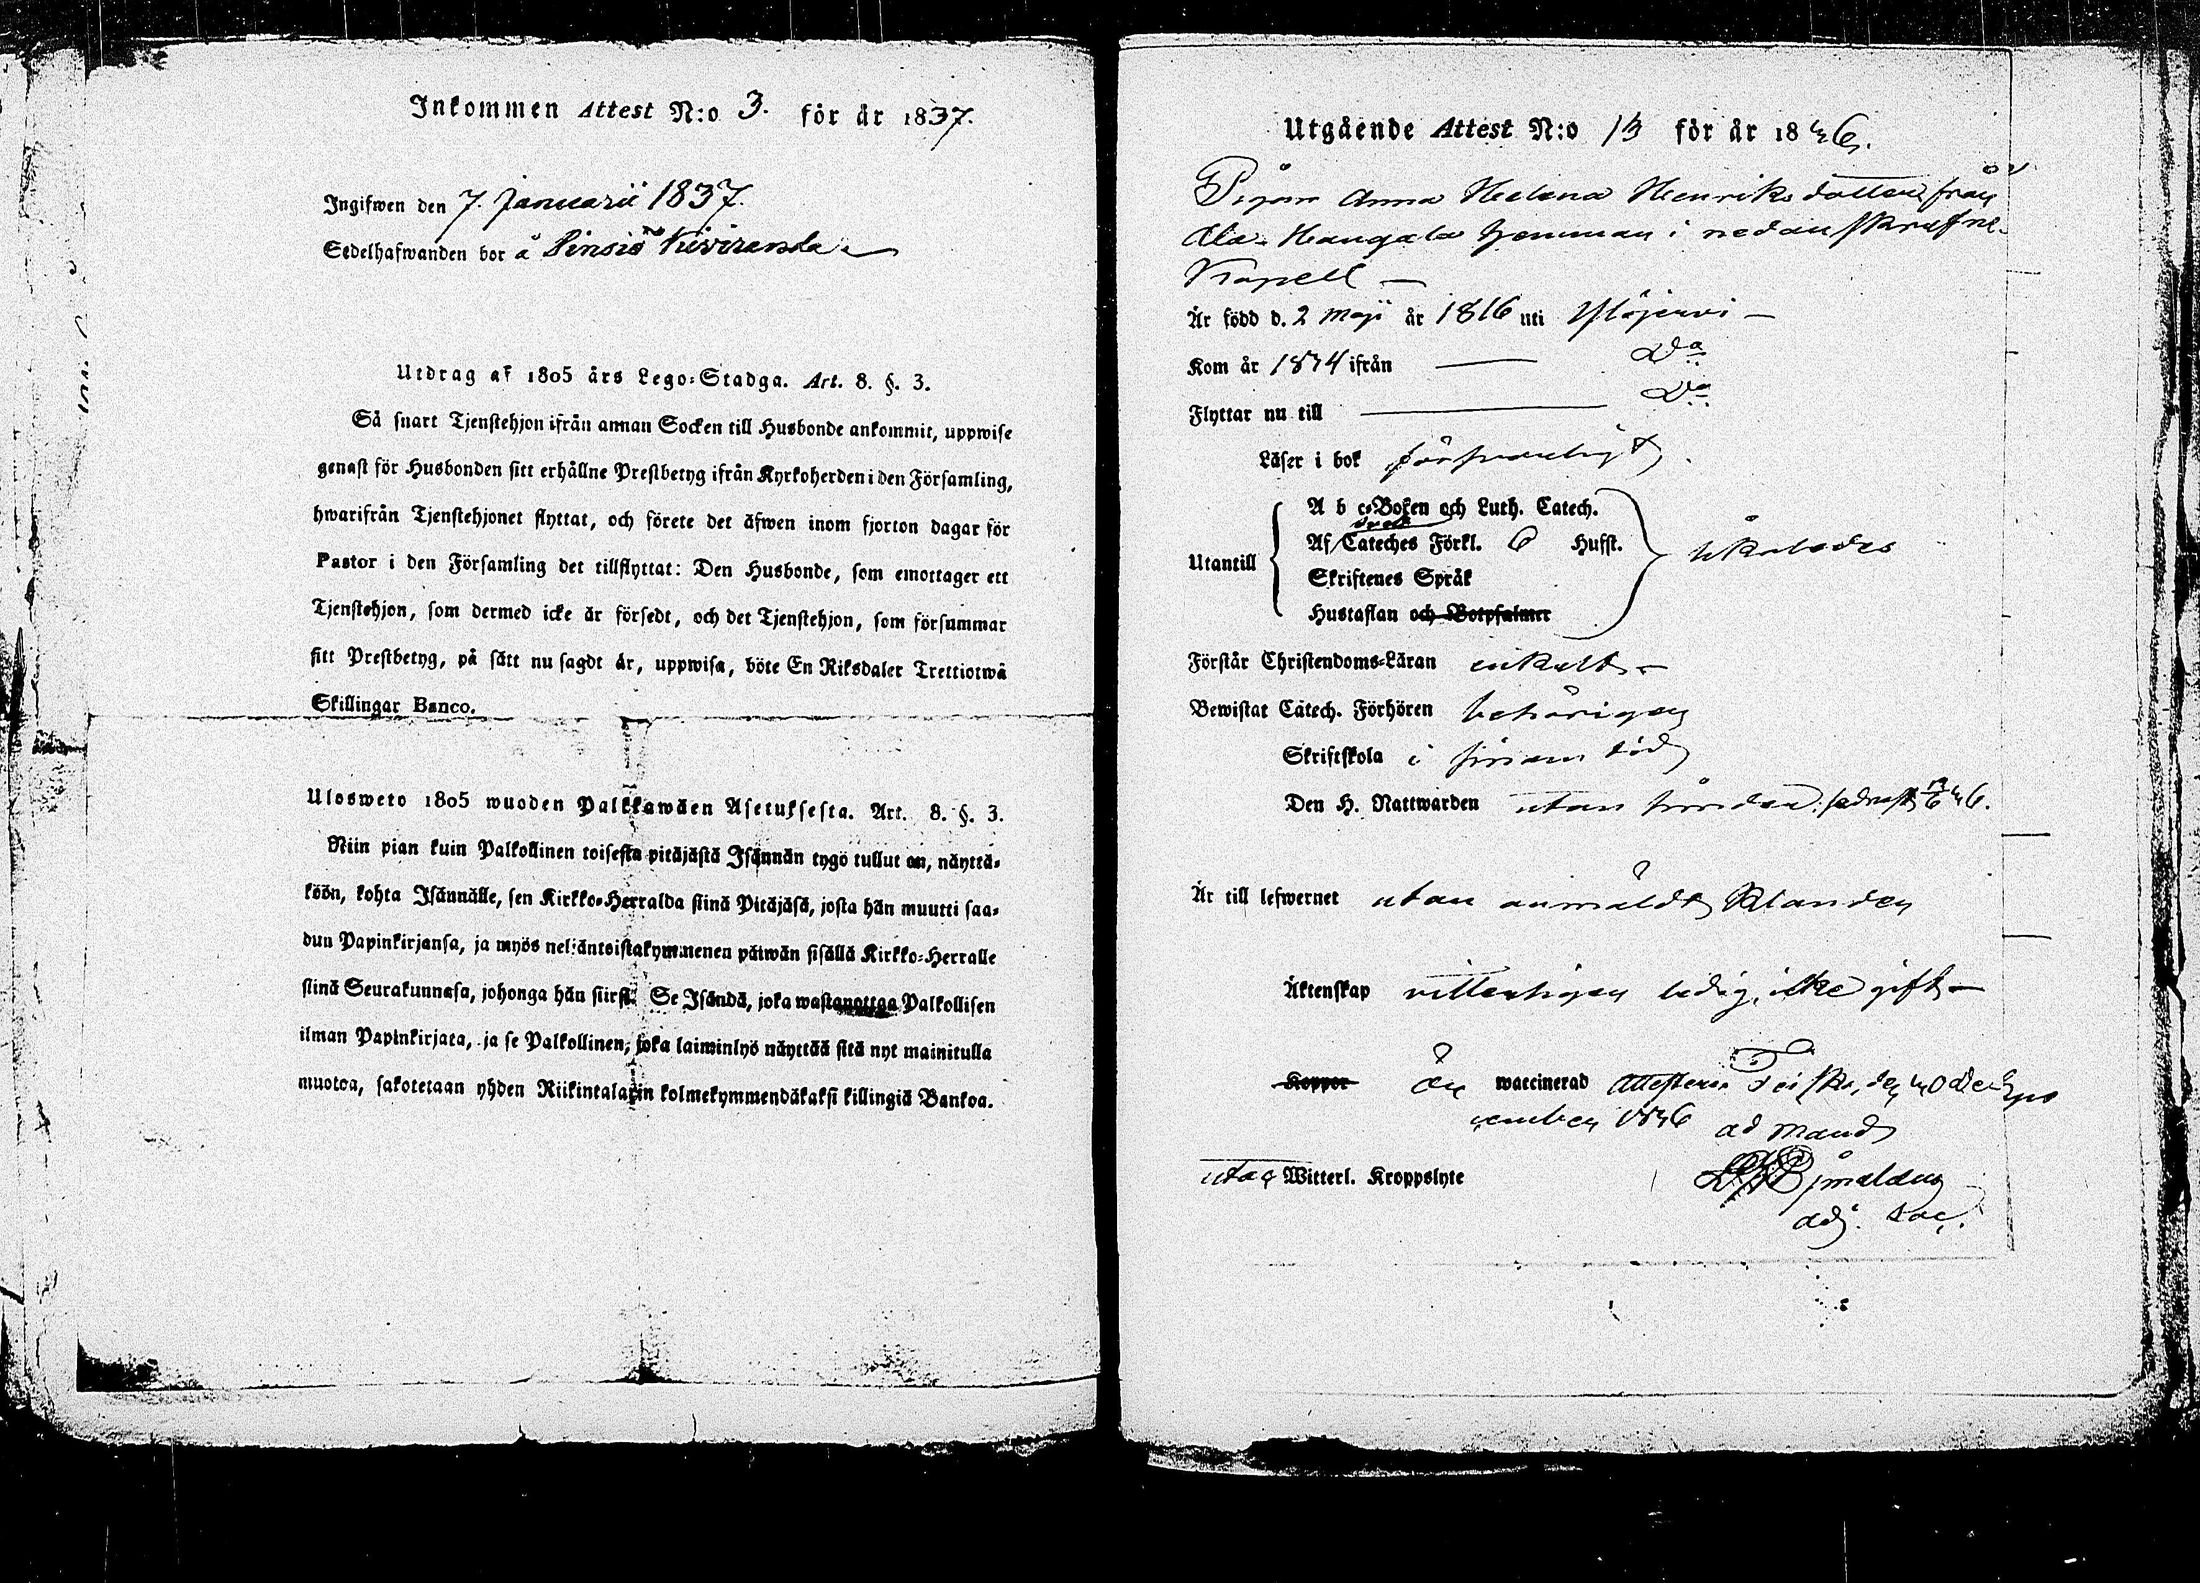 Inkommen Attest N:o 3. för år 1837.
Ingifwen den 7. Januarii 1837.
Sedelhafwanden bor å Pinsiö
Utdrag af 1805 års Lego-Stadga. Art. 8. §. 3.
Så snart Tjenstehjon ifrån annan Socken till Husbonde ankommit, uppwise
genast för Husbonden sitt erhållne Prestbetyg ifrån Kyrkoherden i den Församling,
hwarifrån Tjenstehjonet flyttat, och förete det äfwen inom fjorton dagar för
Pastor i den Församling det tillflyttat: Den Husbonde, som emottager ett
Tjenstehjon, som dermed icke är försedt, och det Tjenstehjon, som försummar
sitt Prestbetyg, på sätt nu sagdt är, uppwisa, böte En Riksdaler Trettiotwå
Skillingar Banco.
Ulosweto 1805 wuoden Palkkawäen Asetuksesta. Art. 8. §. 3.
Niin pian kuin Palkollinen toisesta pitäjästä Isännän tygö tullut on, näyttä-
köön, kohta Isännälle, sen Kirkko-Herralda siinä Pitäjäsä, josta hän muutti saa-
dun Papinkirjansa, ja myös neljäntoistakymmenen päiwän sisällä Kirkko-Herralle
siinä Seurakunnasa, johonga hän siirsi. Se Isändä, joka wastanottaa Palkollisen
ilman Papinkirjata, ja se Palkollinen, joka laiminlyö näyttää sitä nyt mainitulla
muotoa, sakotetaan yhden Riikintalarin kolmekymmendäkaksi killingiä Bankoa.
Utgående Attest N:o 13 för år 1836.
Pigan Anna Helena Henriksdotter från
Ala-Haugala hemman i nedanskrefne
Kapell —
Är född d. 2 Maji år 1816 uti Ylöjervi —
Kom år 1834 ifrån — Do
Flyttar nu till — Do
Läser i bok försvarligt
A b c-Boken och Luth. Catech.
Af Cateches Förkl. 6 Hufst.
Utantill likaledes
Skriftenes Språk
Hustaflan och Botpsalmer
Förstår Christendoms-Läran enkelt —
Bewistat Catech. Förhören behörigen
Skriftskola i sinom tid
Den H. Nattwarden utan hinder, sednast
Är till lefwernet utan anmäldt klander
Äktenskap witterligen ledig, icke gift —
Koppor Är waccinerad Attesterar Teisko, den 30 Dec-
ember 1836 ad mand
utan Witterl. Kroppslyte
adj. Sac.